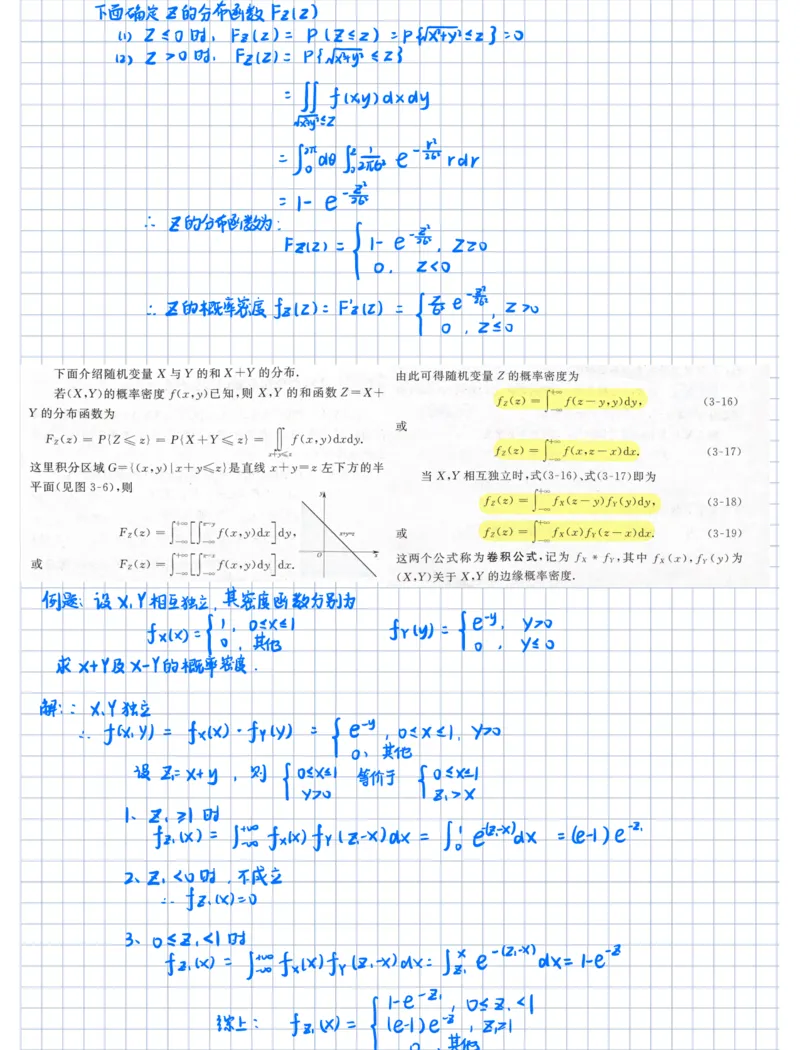 下面确定 Z 的分布函数 Fz(z)
(1) Z ≤ 0 时, Fz(z) = P(Z≤z) = P{√x²+y² ≤ z} = 0
(2) Z > 0 时, Fz(z) = P{√x²+y² ≤ z}
= ∬ f(x,y) dxdy
√x²+y² ≤ z
= ∫₀^2π dθ ∫₀^z 1/2πσ² e^(-r²/2σ²) r dr
= 1 - e^(-z²/2σ²)
∴ Z的分布函数为:
Fz(z) = { 1 - e^(-z²/2σ²), Z≥0
0, Z<0
∴ Z的概率密度 fz(z) = F'z(z) = { z/σ² e^(-z²/2σ²), Z>0
0, Z≤0
下面介绍随机变量 X 与 Y 的和 X+Y 的分布.
若(X,Y)的概率密度 f(x,y)已知,则 X,Y 的和函数 Z=X+
Y 的分布函数为
Fz(z) = P{Z≤z} = P{X+Y≤z} = ∬ f(x,y)dxdy.
x+y≤z
这里积分区域 G={(x,y)|x+y≤z}是直线 x+y=z 左下方的半
平面(见图 3-6),则
Fz(z) = ∫_{-∞}^{+∞} [∫_{-∞}^{z-y} f(x,y)dx] dy,
或 Fz(z) = ∫_{-∞}^{+∞} [∫_{-∞}^{z-x} f(x,y)dy] dx.
y
x+y=z
O x
由此可得随机变量 Z 的概率密度为
fz(z) = ∫_{-∞}^{+∞} f(z-y,y)dy, (3-16)
或
fz(z) = ∫_{-∞}^{+∞} f(x,z-x)dx. (3-17)
当 X,Y 相互独立时,式(3-16)、式(3-17)即为
fz(z) = ∫_{-∞}^{+∞} fX(z-y)fY(y)dy, (3-18)
或 fz(z) = ∫_{-∞}^{+∞} fX(x)fY(z-x)dx. (3-19)
这两个公式称为卷积公式,记为 fX * fY,其中 fX(x),fY(y)为
(X,Y)关于 X,Y 的边缘概率密度.
例题: 设 X,Y 相互独立, 其密度函数分别为
fx(x) = { 1, 0≤x≤1 fY(y) = { e^-y, y>0
0, 其他 0, y≤0
求 X+Y 及 X-Y 的概率密度.
解: ∵ X,Y 独立
∴ f(x,y) = fx(x)·fY(y) = { e^-y, 0≤x≤1, y>0
0, 其他
设 Z₁=x+y, 则 { 0≤x≤1 等价于 { 0≤x≤1
y>0 z₁>x
1、Z₁≥1时
fz₁(x) = ∫_{-∞}^{+∞} fx(x) fY(z₁-x) dx = ∫₀^1 e^-(z₁-x) dx = (e-1) e^-z₁
2、Z₁<0时, 不成立
∴ fz₁(x)=0
3、0≤Z₁<1时
fz₁(x) = ∫_{-∞}^{+∞} fx(x) fY(z₁-x) dx = ∫_{z₁}^x e^-(z₁-x) dx = 1-e^-z
综上: fz₁(x) = { 1-e^-z₁, 0≤z₁<1
(e-1)e^-z, z₁≥1
0, 其他